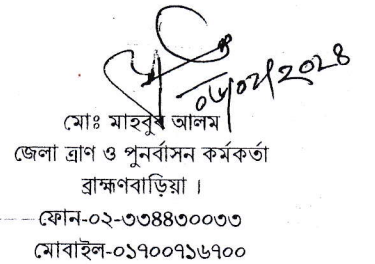 ০৬/০২/২০২৪
মোঃ মাহবুব আলম
জেলা ত্রাণ ও পুনর্বাসন কর্মকর্তা
ব্রাহ্মণবাড়িয়া ।
ফোন-০২-৩৩৪৪৩০০৩৩
মোবাইল-০১৭০০৭১৬৭০০